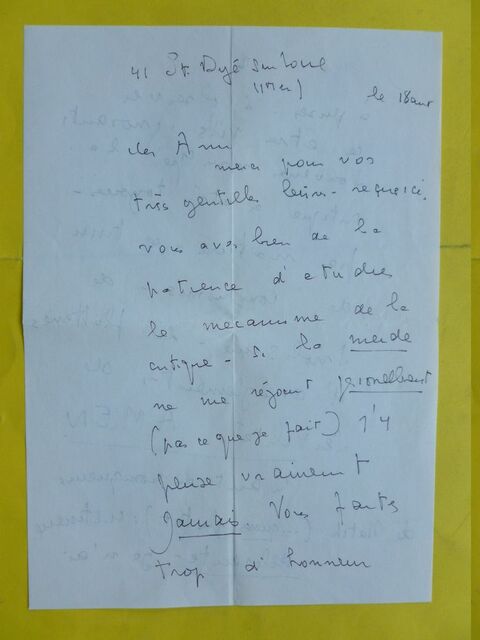 41 St. Dyé sur Loire
le 18 aout
chers Amis
merci pour vos
très gentilles lettres - reçues ici.
vous avez bien de la
patience d'etudier
le mecanisme de la
critique - si la merde
ne me réjouit
(pas ce que je fait) j'y
pense vraiment
jamais Vous faites
trop d'honneur